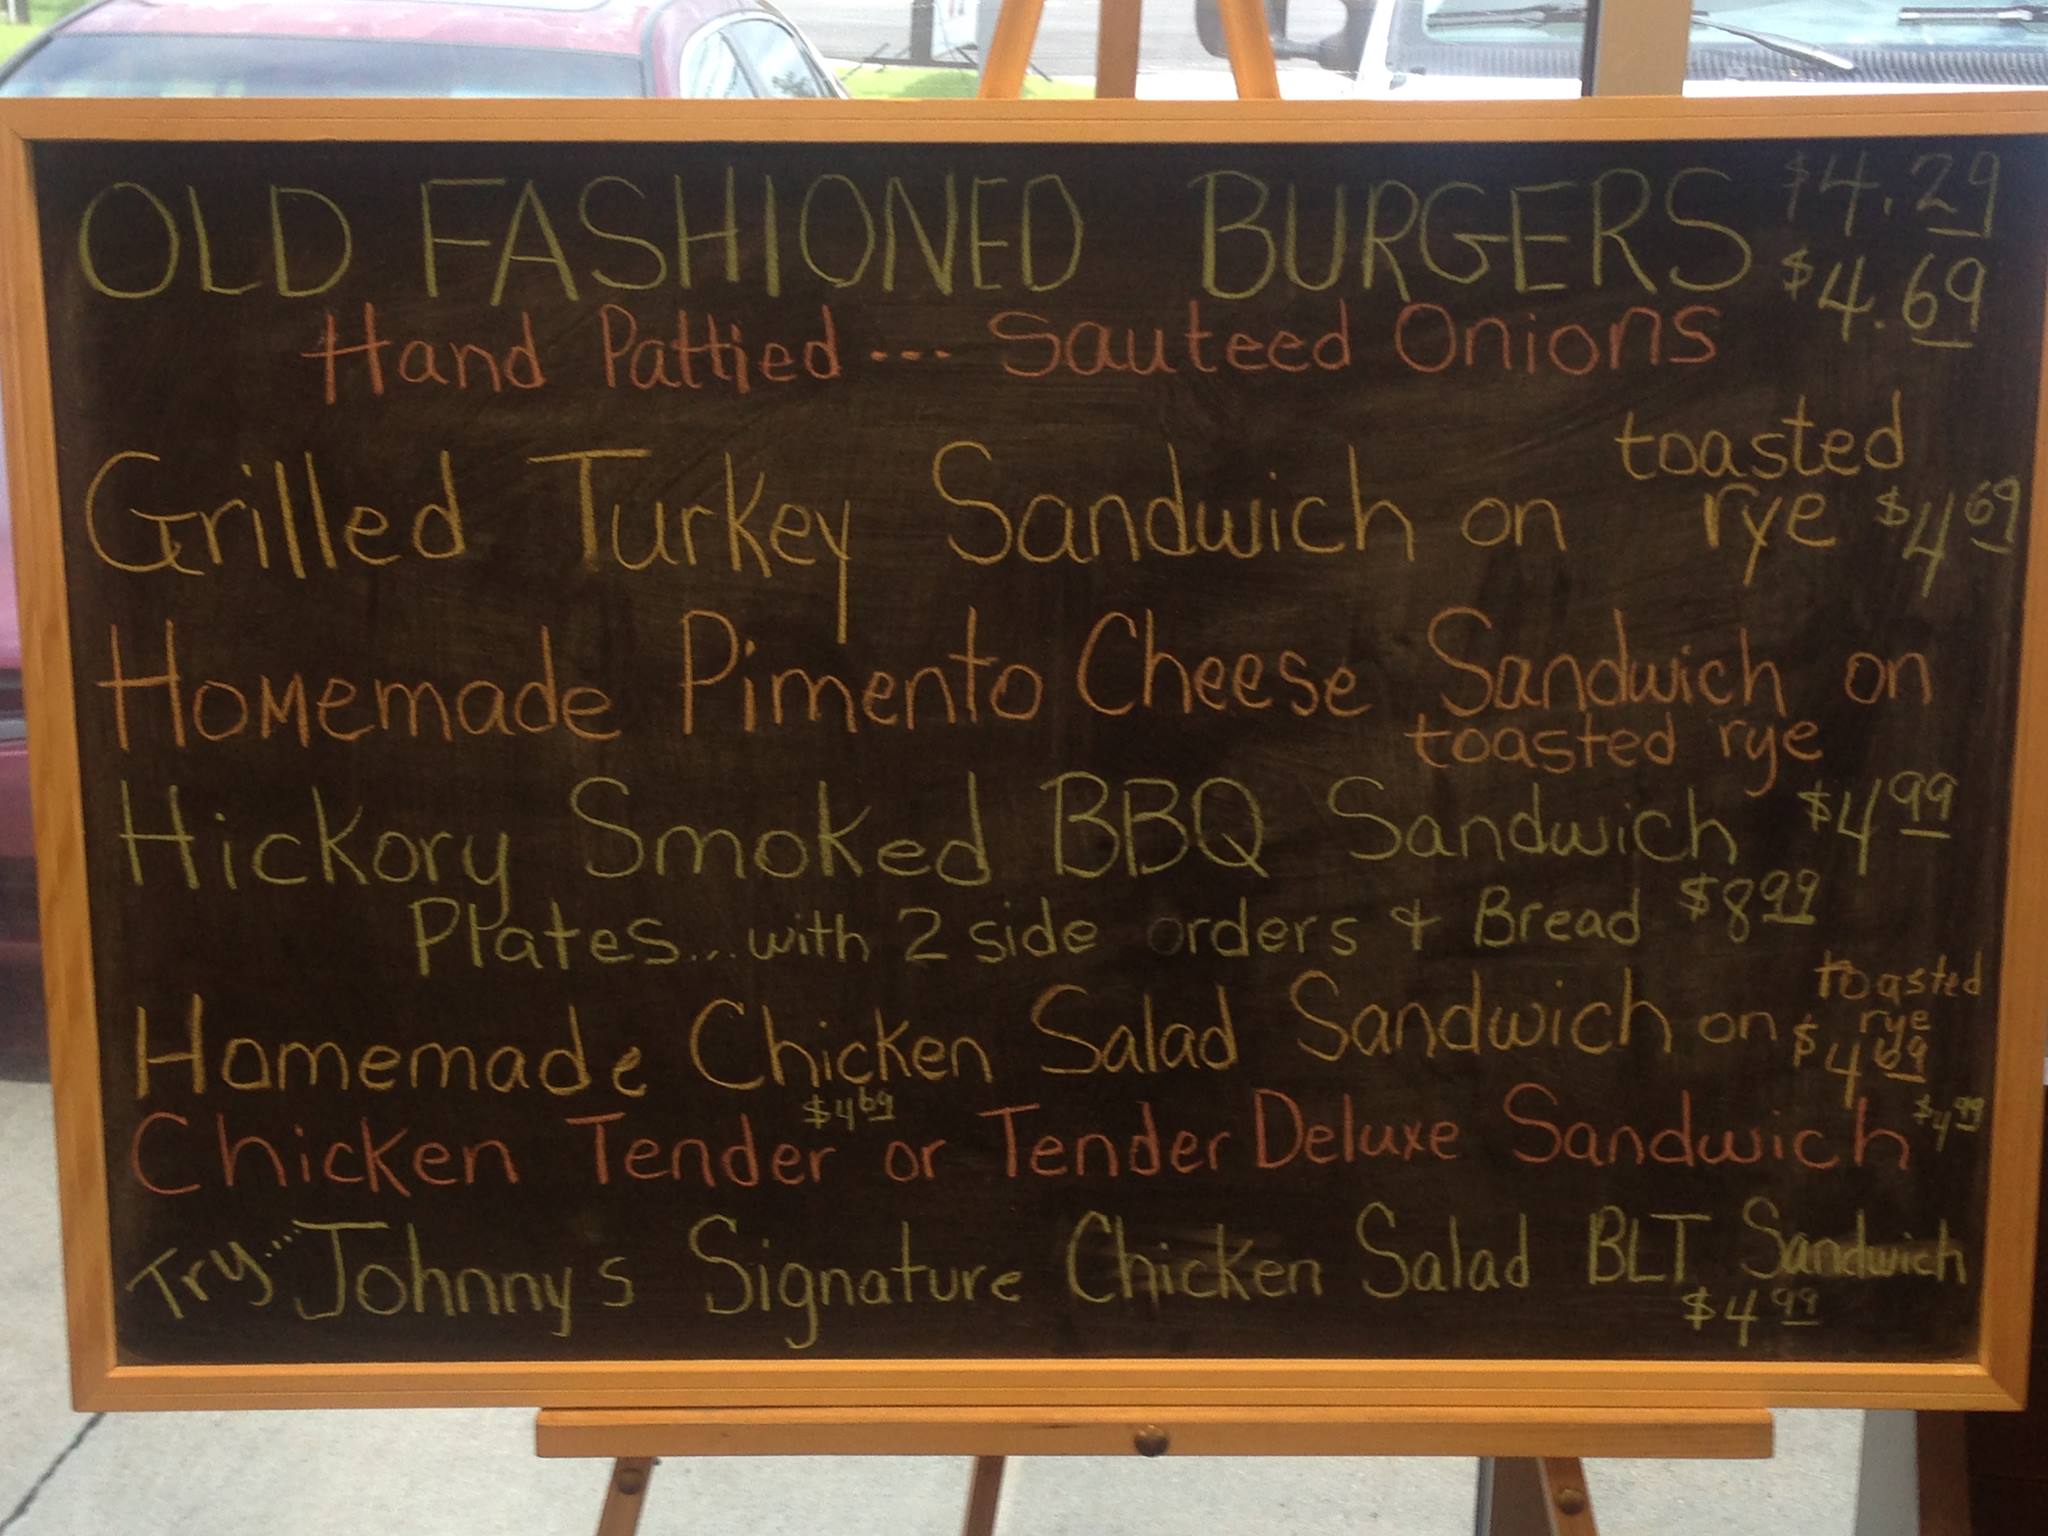 OLD FASHIONED BURGERS $4.29
$4.69
Hand Pattied ... Sauteed Onions
Grilled Turkey Sandwich on toasted
rye $4 69
Homemade Pimento Cheese Sandwich on
toasted rye
Hickory Smoked BBQ Sandwich $4 99
Plates...with 2 side orders & Bread $8 99
Homemade Chicken Salad Sandwich on toasted
rye
$4 69
$4 69
Chicken Tender or Tender Deluxe Sandwich $4 99
Try....Johnnys Signature Chicken Salad BLT Sandwich
$4 99